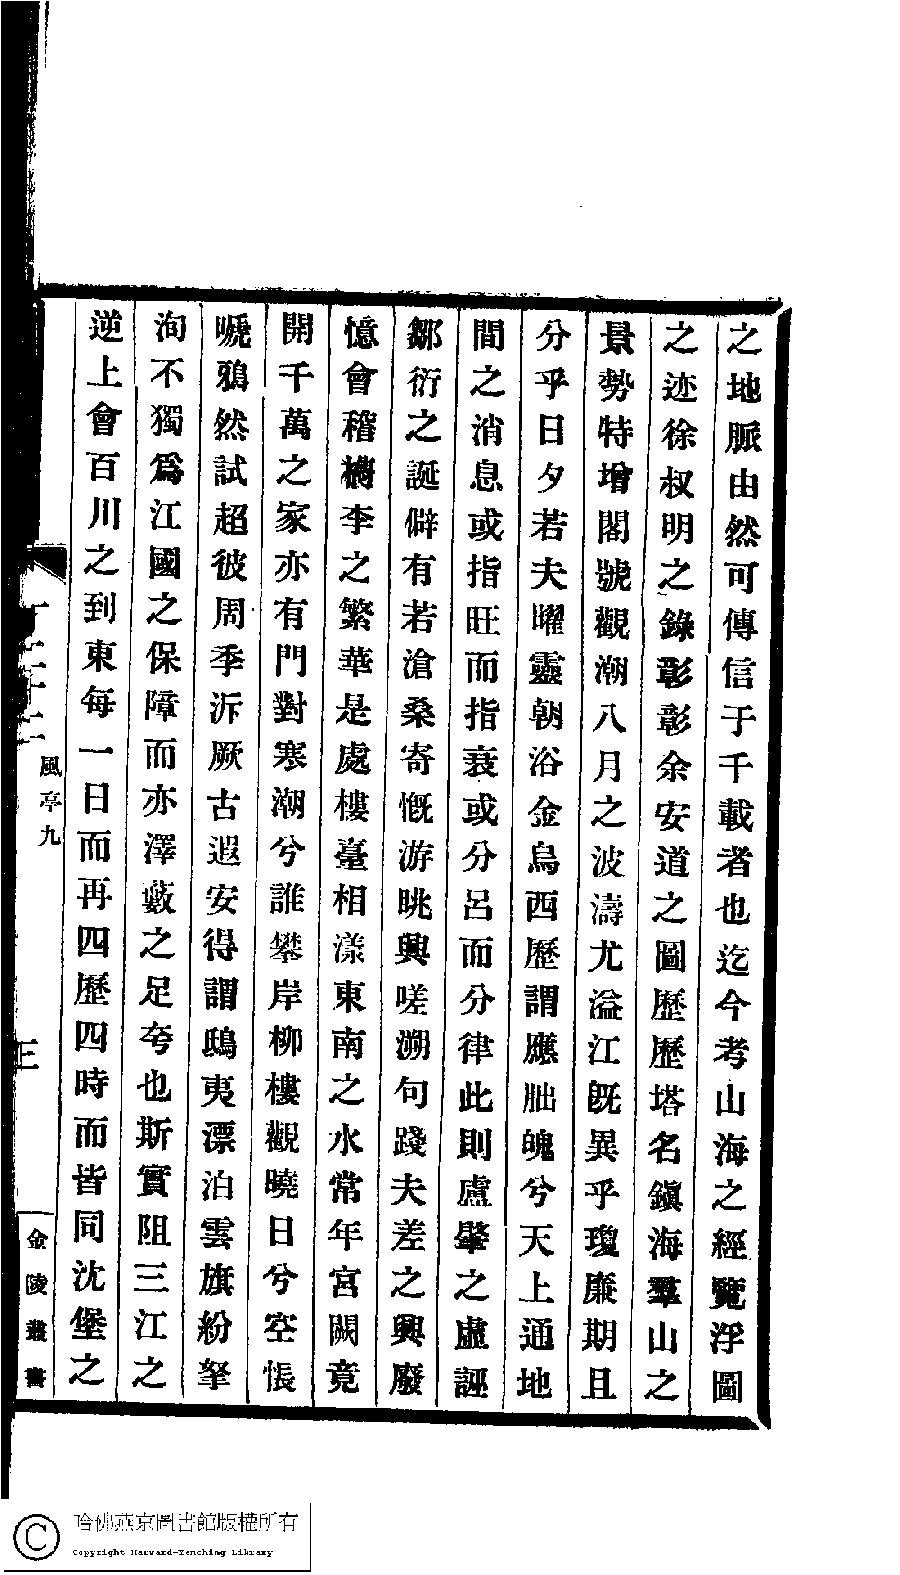 之地脈由然可傳信于千載者也迄今考山海之經覽浮圖
之迹徐叔明之錄彰彰余安道之圖歷歷塔名鎭海羣山之
景勢特增閣號觀潮八月之波濤尤溢江旣異乎瓊廉期且
分乎日夕若夫曜靈朝浴金烏西歷謂應朏魄兮天上通地
間之消息或指旺而指衰或分呂而分律此則盧肇之虛誣
鄒衍之誕僻有若滄桑寄慨游眺興嗟溯句踐夫差之興廢
憶會稽檇李之繁華是處樓臺相漾東南之水常年宮闕竟
開千萬之家亦有門對寒潮兮誰攀岸柳樓觀曉日兮空悵
嘵鴉然試超彼周季泝厥古遐安得謂鴟夷漂泊雲旗紛拏
洵不獨爲江國之保障而亦澤藪之足夸也斯實阻三江之
逆上會百川之到東每一日而再四歷四時而皆同沈堡之
風亭九
三
金陵叢書
哈佛燕京圖書館版權所有
Copyright Harvard-Yenching Library